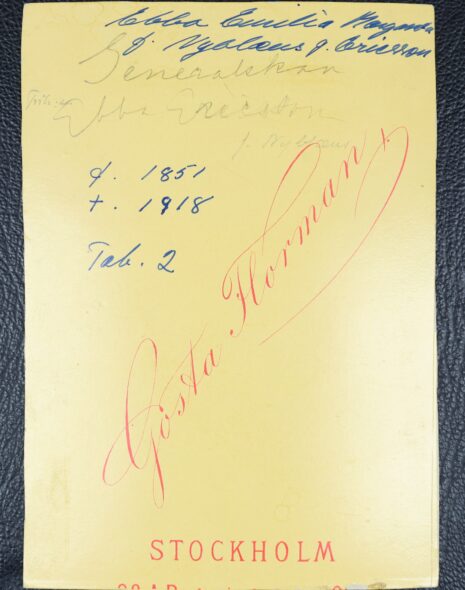 Ebba Emilia
f. Nyblæus g. Ericsson
Generalskan
Ebba Ericsson
f. Nyblæus
f. 1851
+. 1918
Tab. 2
Gösta Florman
STOCKHOLM